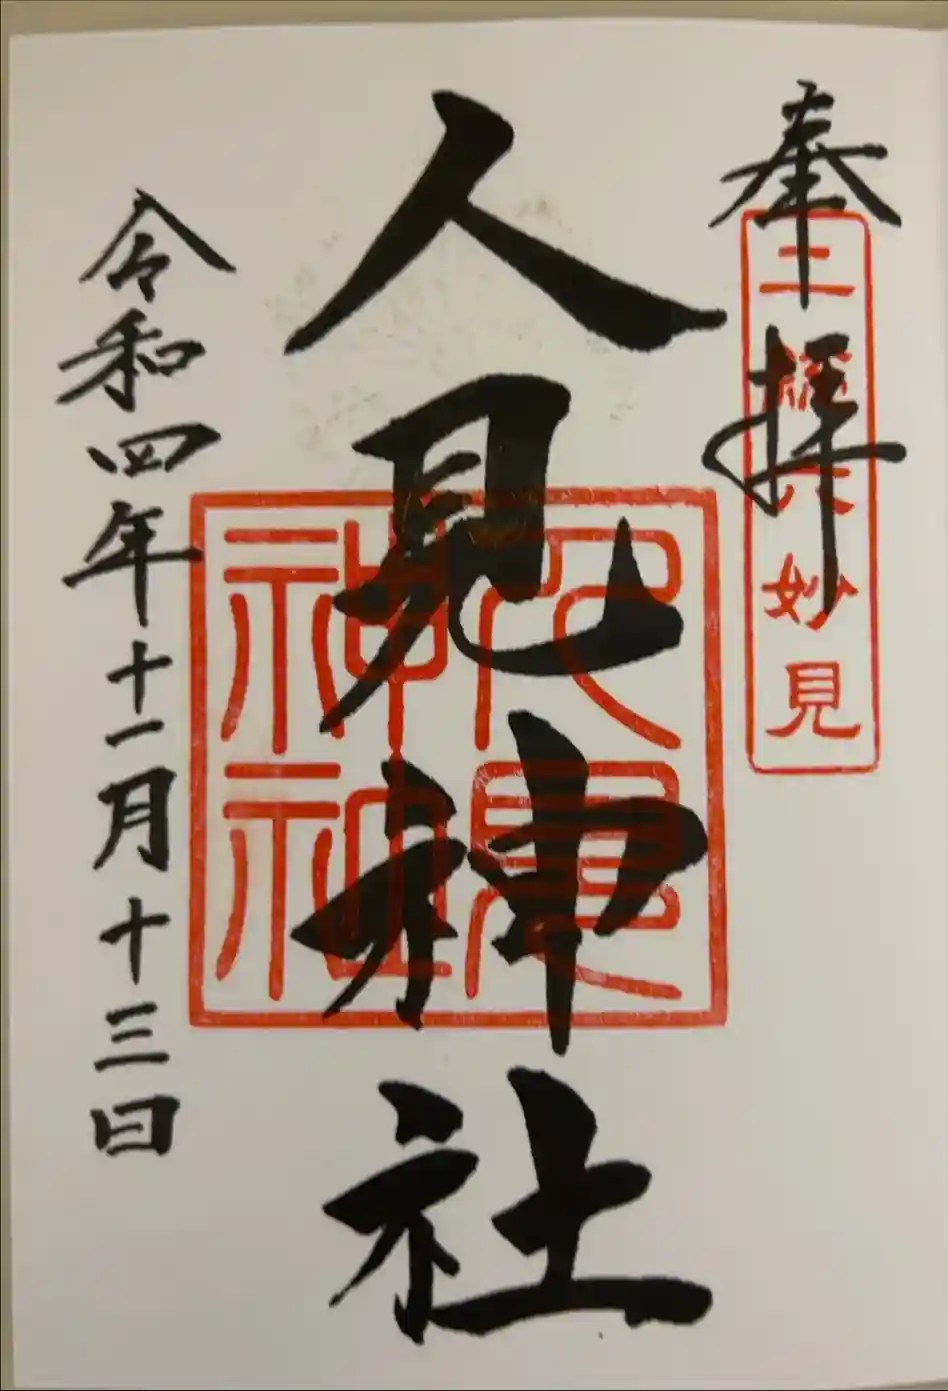 奉拝
三 大妙見
人見神社
人見神社
令和四年十一月十三日